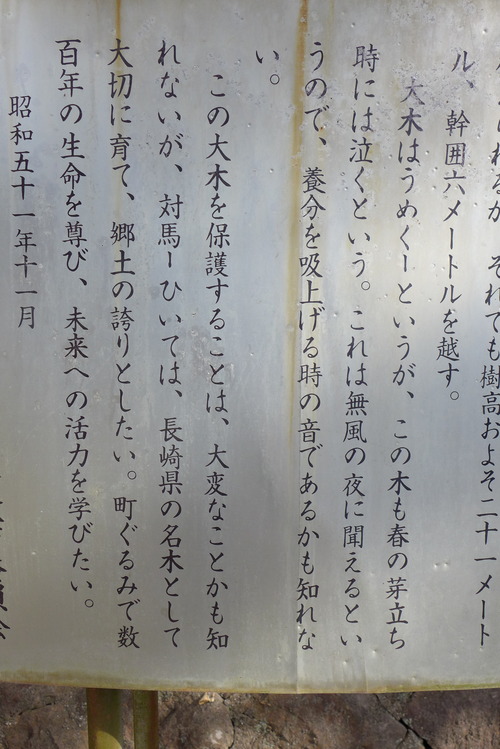 それでも樹高およそ二十一メート
ル、幹囲六メートルを越す。
大木はうめくーというが、この木も春の芽立ち
時には泣くという。これは無風の夜に聞えるとい
うので、養分を吸上げる時の音であるかも知れな
い。
この大木を保護することは、大変なことかも知
れないが、対馬ーひいては、長崎県の名木として
大切に育て、郷土の誇りとしたい。町ぐるみで数
百年の生命を尊び、未来への活力を学びたい。
昭和五十一年十一月